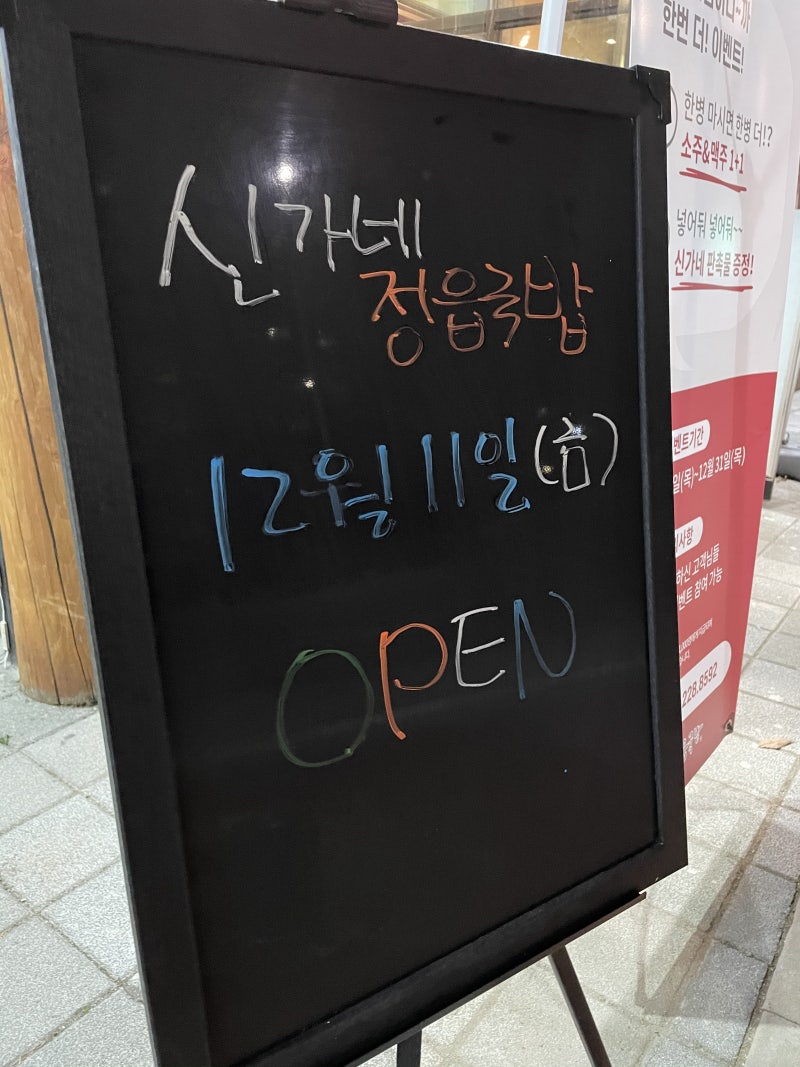 신가네
정읍국밥
12월 11일 (금)
OPEN
한번 더! 이벤트!
한병 마시면 한병 더!?
소주&맥주 1+1
넣어둬 넣어둬~~
신가네 판촉물 증정!
벤트기간
일(목)~12월 31일(목)
사항
하신 고객님들
벤트 참여 가능
228.8592